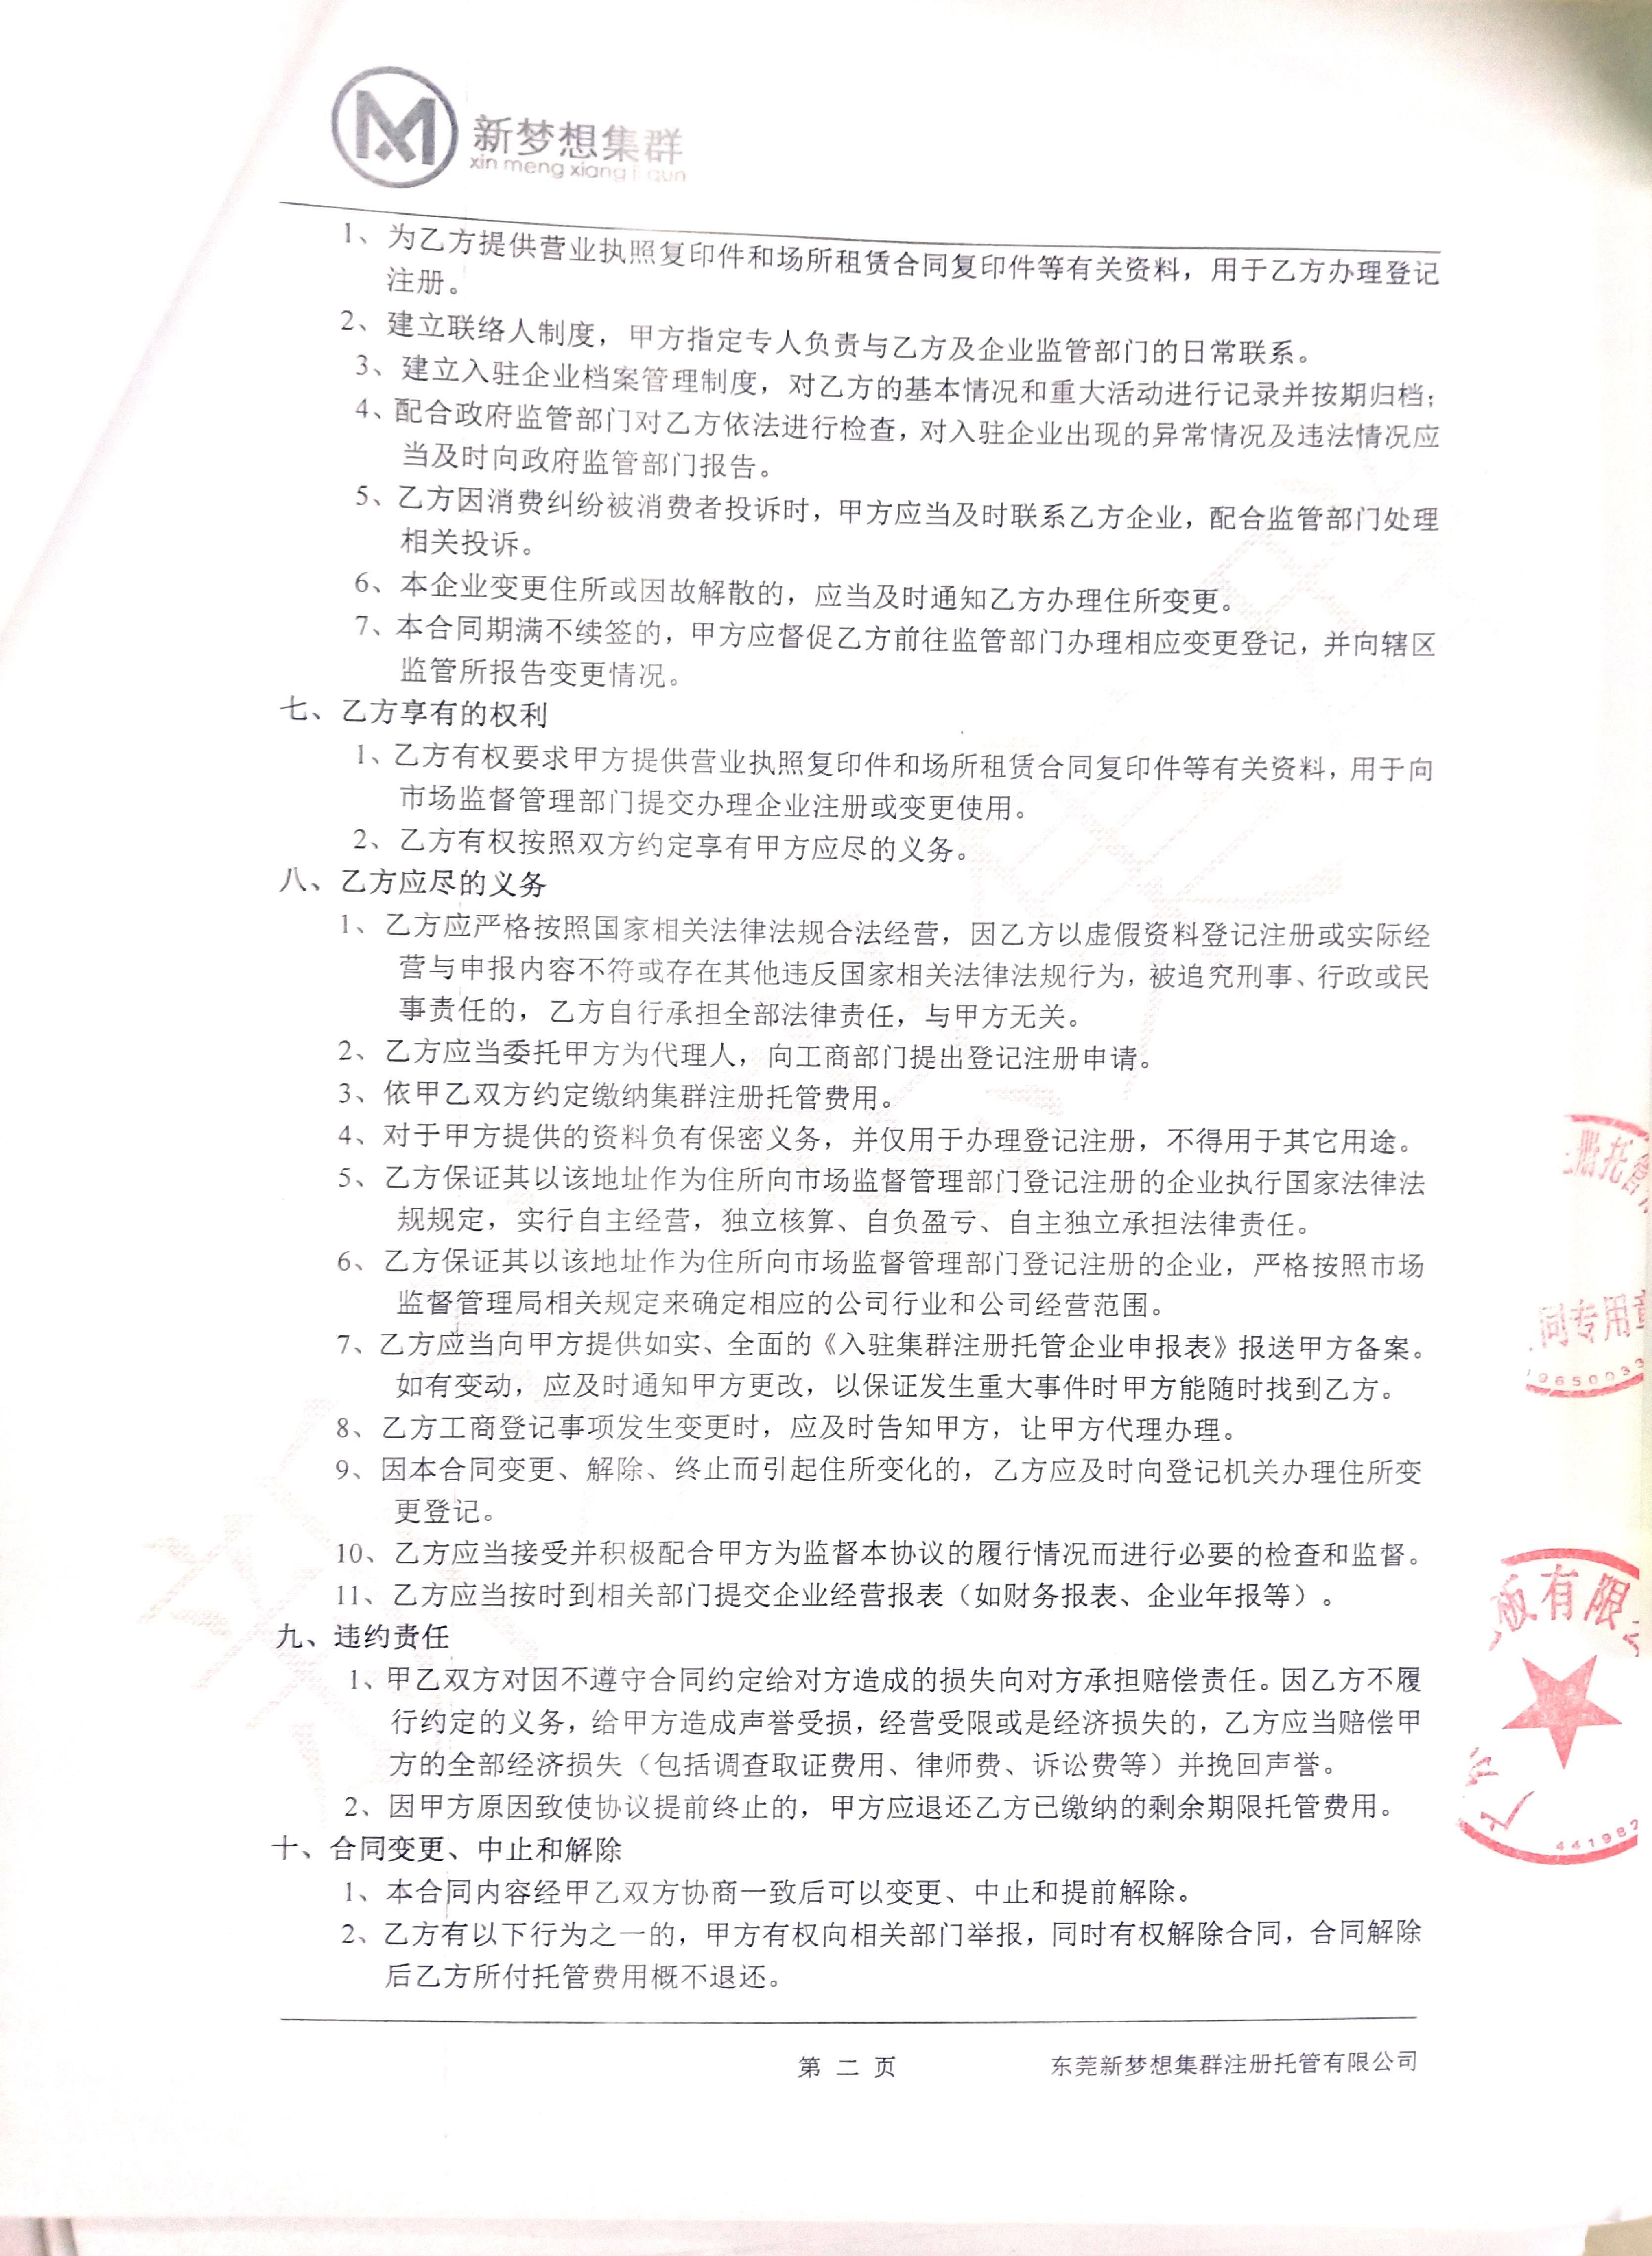 新梦想集群
xin meng xiang ji qun
1、为乙方提供营业执照复印件和场所租赁合同复印件等有关资料，用于乙方办理登记
注册。
2、建立联络人制度，甲方指定专人负责与乙方及企业监管部门的日常联系。
3、建立入驻企业档案管理制度，对乙方的基本情况和重大活动进行记录并按期归档；
4、配合政府监管部门对乙方依法进行检查，对入驻企业出现的异常情况及违法情况应
当及时向政府监管部门报告。
5、乙方因消费纠纷被消费者投诉时，甲方应当及时联系乙方企业，配合监管部门处理
相关投诉。
6、本企业变更住所或因故解散的，应当及时通知乙方办理住所变更。
7、本合同期满不续签的，甲方应督促乙方前往监管部门办理相应变更登记，并向辖区
监管所报告变更情况。
七、乙方享有的权利
1、乙方有权要求甲方提供营业执照复印件和场所租赁合同复印件等有关资料，用于向
市场监督管理部门提交办理企业注册或变更使用。
2、乙方有权按照双方约定享有甲方应尽的义务。
八、乙方应尽的义务
1、乙方应严格按照国家相关法律法规合法经营，因乙方以虚假资料登记注册或实际经
营与申报内容不符或存在其他违反国家相关法律法规行为，被追究刑事、行政或民
事责任的，乙方自行承担全部法律责任，与甲方无关。
2、乙方应当委托甲方为代理人，向工商部门提出登记注册申请。
3、依甲乙双方约定缴纳集群注册托管费用。
4、对于甲方提供的资料负有保密义务，并仅用于办理登记注册，不得用于其它用途。
5、乙方保证其以该地址作为住所向市场监督管理部门登记注册的企业执行国家法律法
规规定，实行自主经营，独立核算、自负盈亏、自主独立承担法律责任。
6、乙方保证其以该地址作为住所向市场监督管理部门登记注册的企业，严格按照市场
监督管理局相关规定来确定相应的公司行业和公司经营范围。
7、乙方应当向甲方提供如实、全面的《入驻集群注册托管企业申报表》报送甲方备案。
如有变动，应及时通知甲方更改，以保证发生重大事件时甲方能随时找到乙方。
8、乙方工商登记事项发生变更时，应及时告知甲方，让甲方代理办理。
9、因本合同变更、解除、终止而引起住所变化的，乙方应及时向登记机关办理住所变
更登记。
10、乙方应当接受并积极配合甲方为监督本协议的履行情况而进行必要的检查和监督。
11、乙方应当按时到相关部门提交企业经营报表（如财务报表、企业年报等）。
九、违约责任
1、甲乙双方对因不遵守合同约定给对方造成的损失向对方承担赔偿责任。因乙方不履
行约定的义务，给甲方造成声誉受损，经营受限或是经济损失的，乙方应当赔偿甲
方的全部经济损失（包括调查取证费用、律师费、诉讼费等）并挽回声誉。
2、因甲方原因致使协议提前终止的，甲方应退还乙方已缴纳的剩余期限托管费用。
十、合同变更、中止和解除
1、本合同内容经甲乙双方协商一致后可以变更、中止和提前解除。
2、乙方有以下行为之一的，甲方有权向相关部门举报，同时有权解除合同，合同解除
后乙方所付托管费用概不退还。
第 二 页 东莞新梦想集群注册托管有限公司
册托管
同专用章
9650033
有限
441982